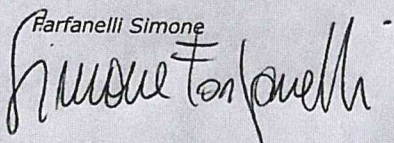 Farfanelli Simone
Simone Farfanelli